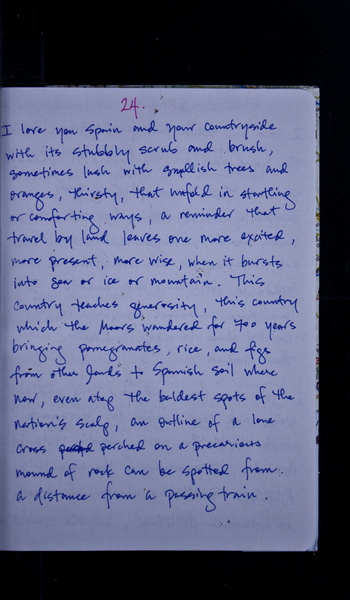 24.
I love you Spain and your countryside
with its stubbly scrub and brush,
sometimes lush with smallish trees and
oranges, thirsty, that unfold in startling
or comforting ways, a reminder that
travel by land leaves one more excited,
more present, more wise, when it bursts
into sea or ice or mountain. This
country teaches generosity, this country
which the Moors wandered for 700 years
bringing pomegranates, rice, and figs
from other lands to Spanish soil where
now, even atop the baldest spots of the
nation's scalp, an outline of a lone
cross perched on a precarious
mound of rock can be spotted from
a distance from a passing train.